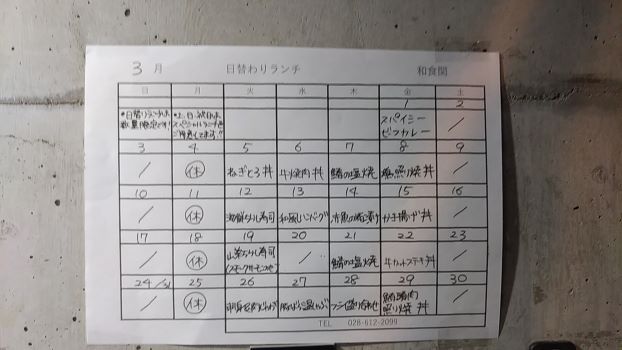 3月 日替わりランチ 和食関
日 月 火 水 木 金 土
1 2
*日替りランチは *土、日、祝日は スパイシー ／
数量限定です! スペシャルランチを ビーフカレー
ご用意してます!!
3 4 5 6 7 8 9
／ 休 ねぎとろ丼 牛焼肉丼 鯖の塩焼 照り焼丼 ／
10 11 12 13 14 15 16
／ 休 海鮮ちらし寿司 和風ハンバーグ かき揚げ丼 ／
17 18 19 20 21 22 23
／ 休 ちらし寿司 ／ 鯖の塩焼 牛カットステーキ丼 ／
(スモークサーモン
24/31 25 26 27 28 29 30
／ 休 フライ盛り合わせ ／
照り焼丼
TEL 028-612-2099